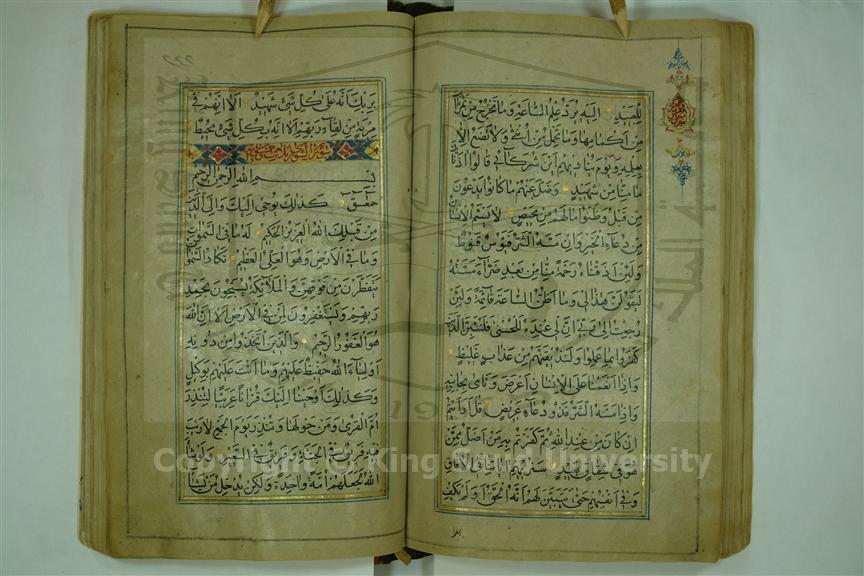 للعبيد اليه يرد علم الساعة وما تخرج من ثمرات
من اكمامها وما تحمل من انثى ولا تضع الا
بعلمه ويوم يناديهم اين شركائي قالوا اذناك
ما منا من شهيد وضل عنهم ما كانوا يدعون
من قبل وظنوا ما لهم من محيص لا يسئم الانسان
من دعاء الخير وان مسه الشر فيؤس قنوط
ولئن اذقناه رحمة منا من بعد ضراء مسته
ليقولن هذا لي وما اظن الساعة قائمة ولئن
رجعت الى ربي ان لي عنده للحسنى فلننبئن الذين
كفروا بما عملوا ولنذيقنهم من عذاب غليظ
واذا انعمنا على الانسان اعرض ونأى بجانبه
واذا مسه الشر فذو دعاء عريض قل ارأيتم
ان كان من عند الله ثم كفرتم به من اضل ممن
هو في شقاق بعيد سنريهم اياتنا في الافاق
وفي انفسهم حتى يتبين لهم انه الحق او لم يكف
بربك انه على كل شئ شهيد الا انهم في
مرية من لقاء ربهم الا انه بكل شئ محيط
بسم الله الرحمن الرحيم
حمعسق كذلك يوحي اليك والى الذين
من قبلك الله العزيز الحكيم له ما في السموات
وما في الارض وهو العلي العظيم تكاد السموات
يتفطرن من فوقهن والملائكة يسبحون بحمد
ربهم ويستغفرون لمن في الارض الا ان الله
هو الغفور الرحيم والذين اتخذوا من دونه
اولياء الله حفيظ عليهم وما انت عليهم بوكيل
وكذلك اوحينا اليك قرانا عربيا لتنذر
ام القرى ومن حولها وتنذر يوم الجمع لا ريب
فيه فريق في الجنة وفريق في السعير ولو شاء
الله لجعلهم امة واحدة ولكن يدخل من يشاء
Copyright © King Saud University